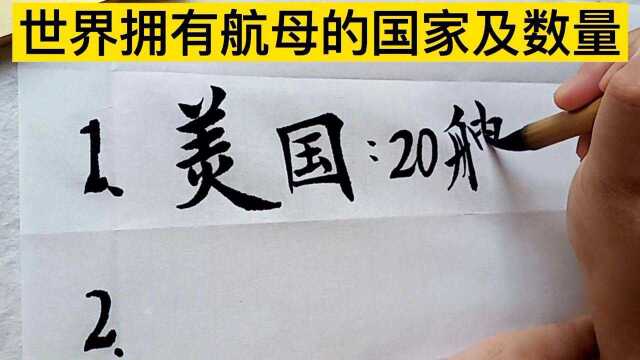 世界拥有航母的国家及数量
1. 美国:20艘
2.